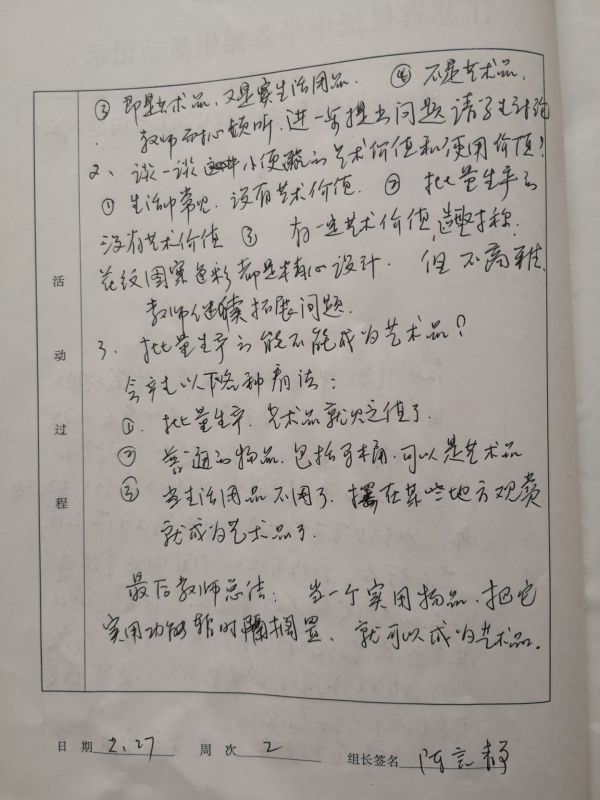 ③ 即是艺术品,又是实生活用品。 ④ 不是艺术品,
教师耐心倾听,进一步提出问题请学生讨论
2、谈一谈小便池的艺术价值和使用价值?
① 生活中常见,没有艺术价值。② 批量生产的
没有艺术价值 ③ 有一定艺术价值,造型对称,
花纹图案色彩都是精心设计。 但不高雅,
教师继续拓展问题。
3、批量生产的能不能成为艺术品?
会产生以下各种看法:
①. 批量生产,艺术品就贬值了。
② 普通的物品,包括马桶,可以是艺术品
③ 当生活用品不用了,摆在某些地方观赏
就成为艺术品了。
最后教师总结: 当一个实用物品,把它
实用功能暂时搁置、就可以成为艺术品。
活
动
过
程
日 期 2.27 周 次 2 组长签名